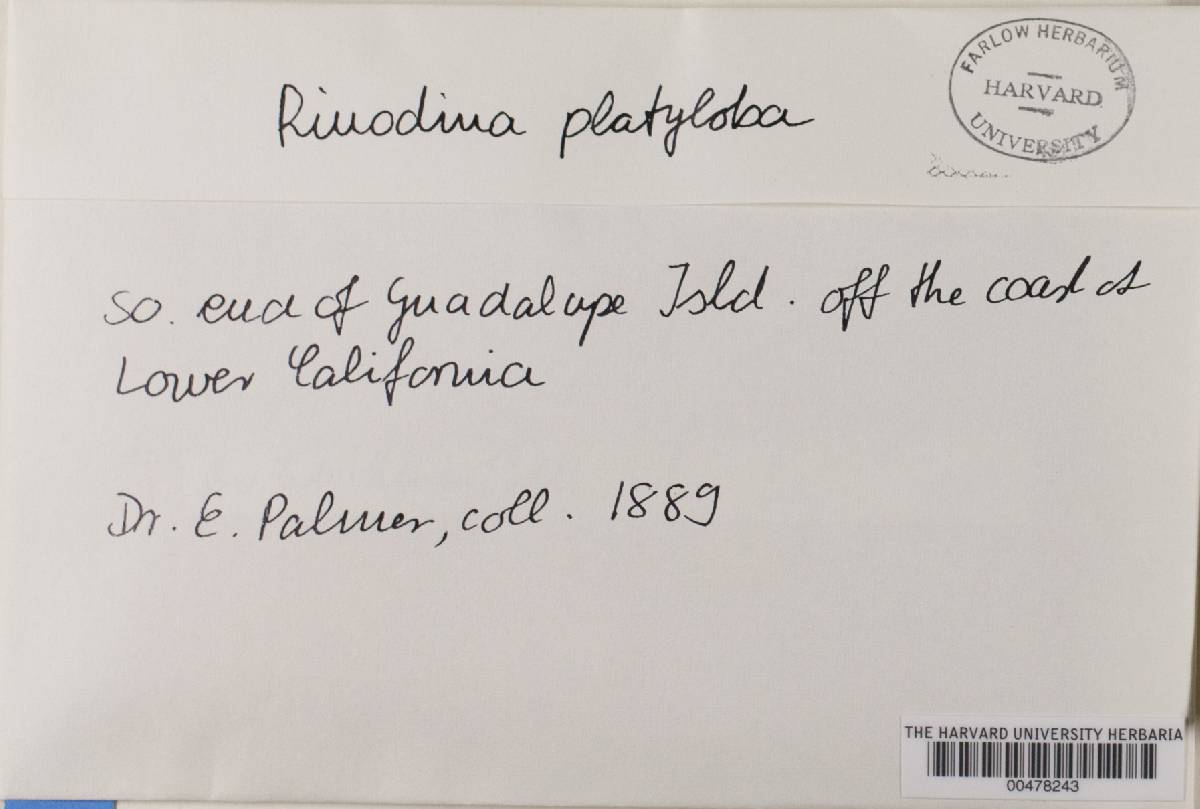 Rinodina platyloba
FARLOW HERBARIUM
HARVARD
UNIVERSITY
so. end of Guadalupe Isld. off the coast of
Lower California
Dr. E. Palmer, coll. 1889
THE HARVARD UNIVERSITY HERBARIA
00478243